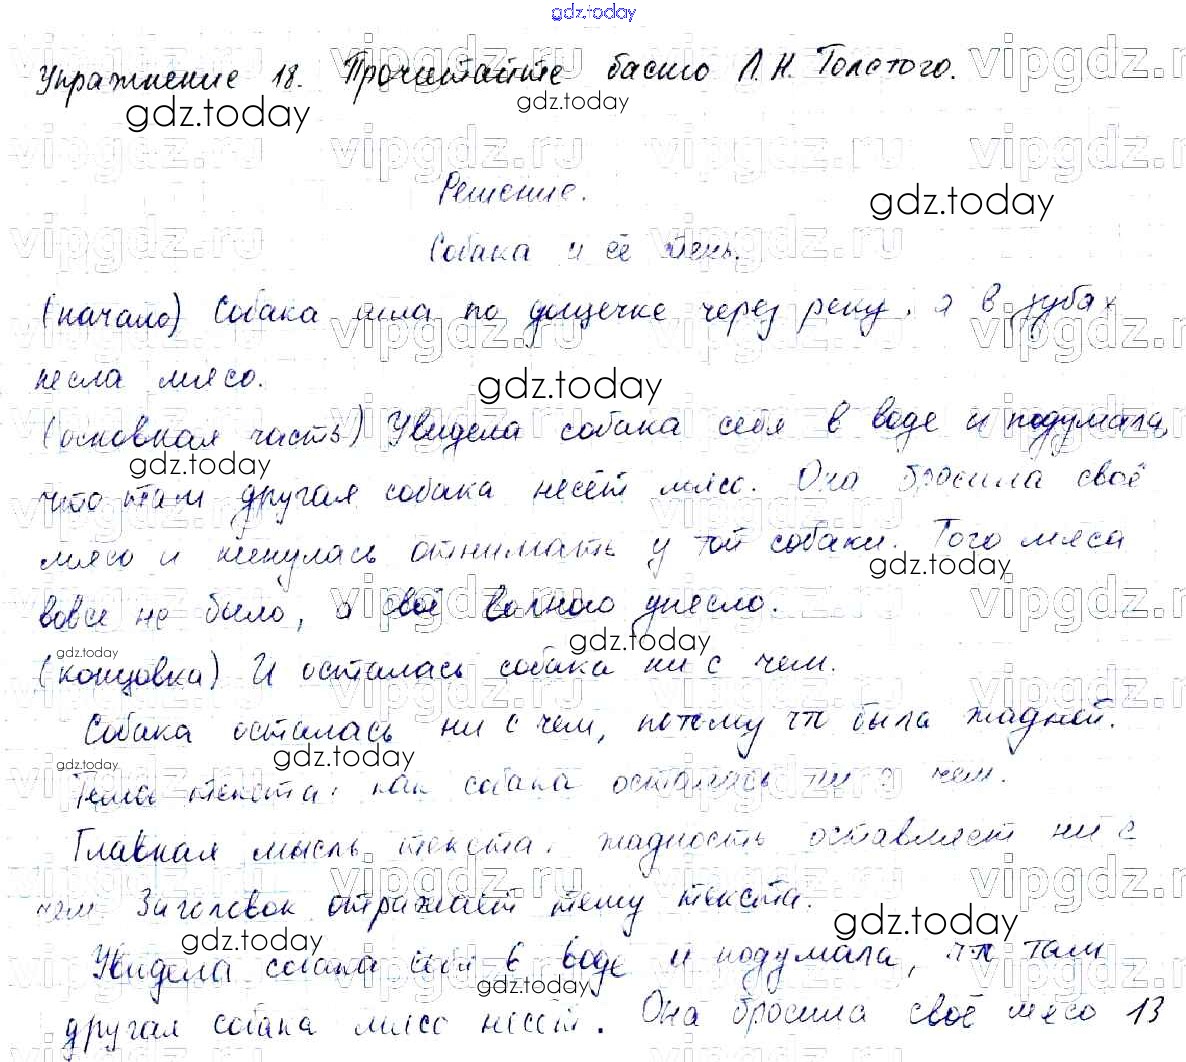 gdz.today
Упражнение 18. Прочитайте басню Л.Н. Толстого.
Решение.
Собака и её тень.
(начало) Собака шла по дощечке через реку, а в зубах
несла мясо.
(основная часть) Увидела собака себя в воде и подумала,
что там другая собака несёт мясо. Она бросила своё
мясо и кинулась отнимать у той собаки. Того мяса
вовсе не было, а своё волною унесло.
(концовка) И осталась собака ни с чем.
Собака осталась ни с чем, потому что была жадной.
Тема текста: как собака осталась ни с чем.
Главная мысль текста: жадность оставляет ни с
чем. Заголовок отражает тему текста.
Увидела собака себя в воде и подумала, что там
другая собака мясо несёт. Она бросила своё мясо 13